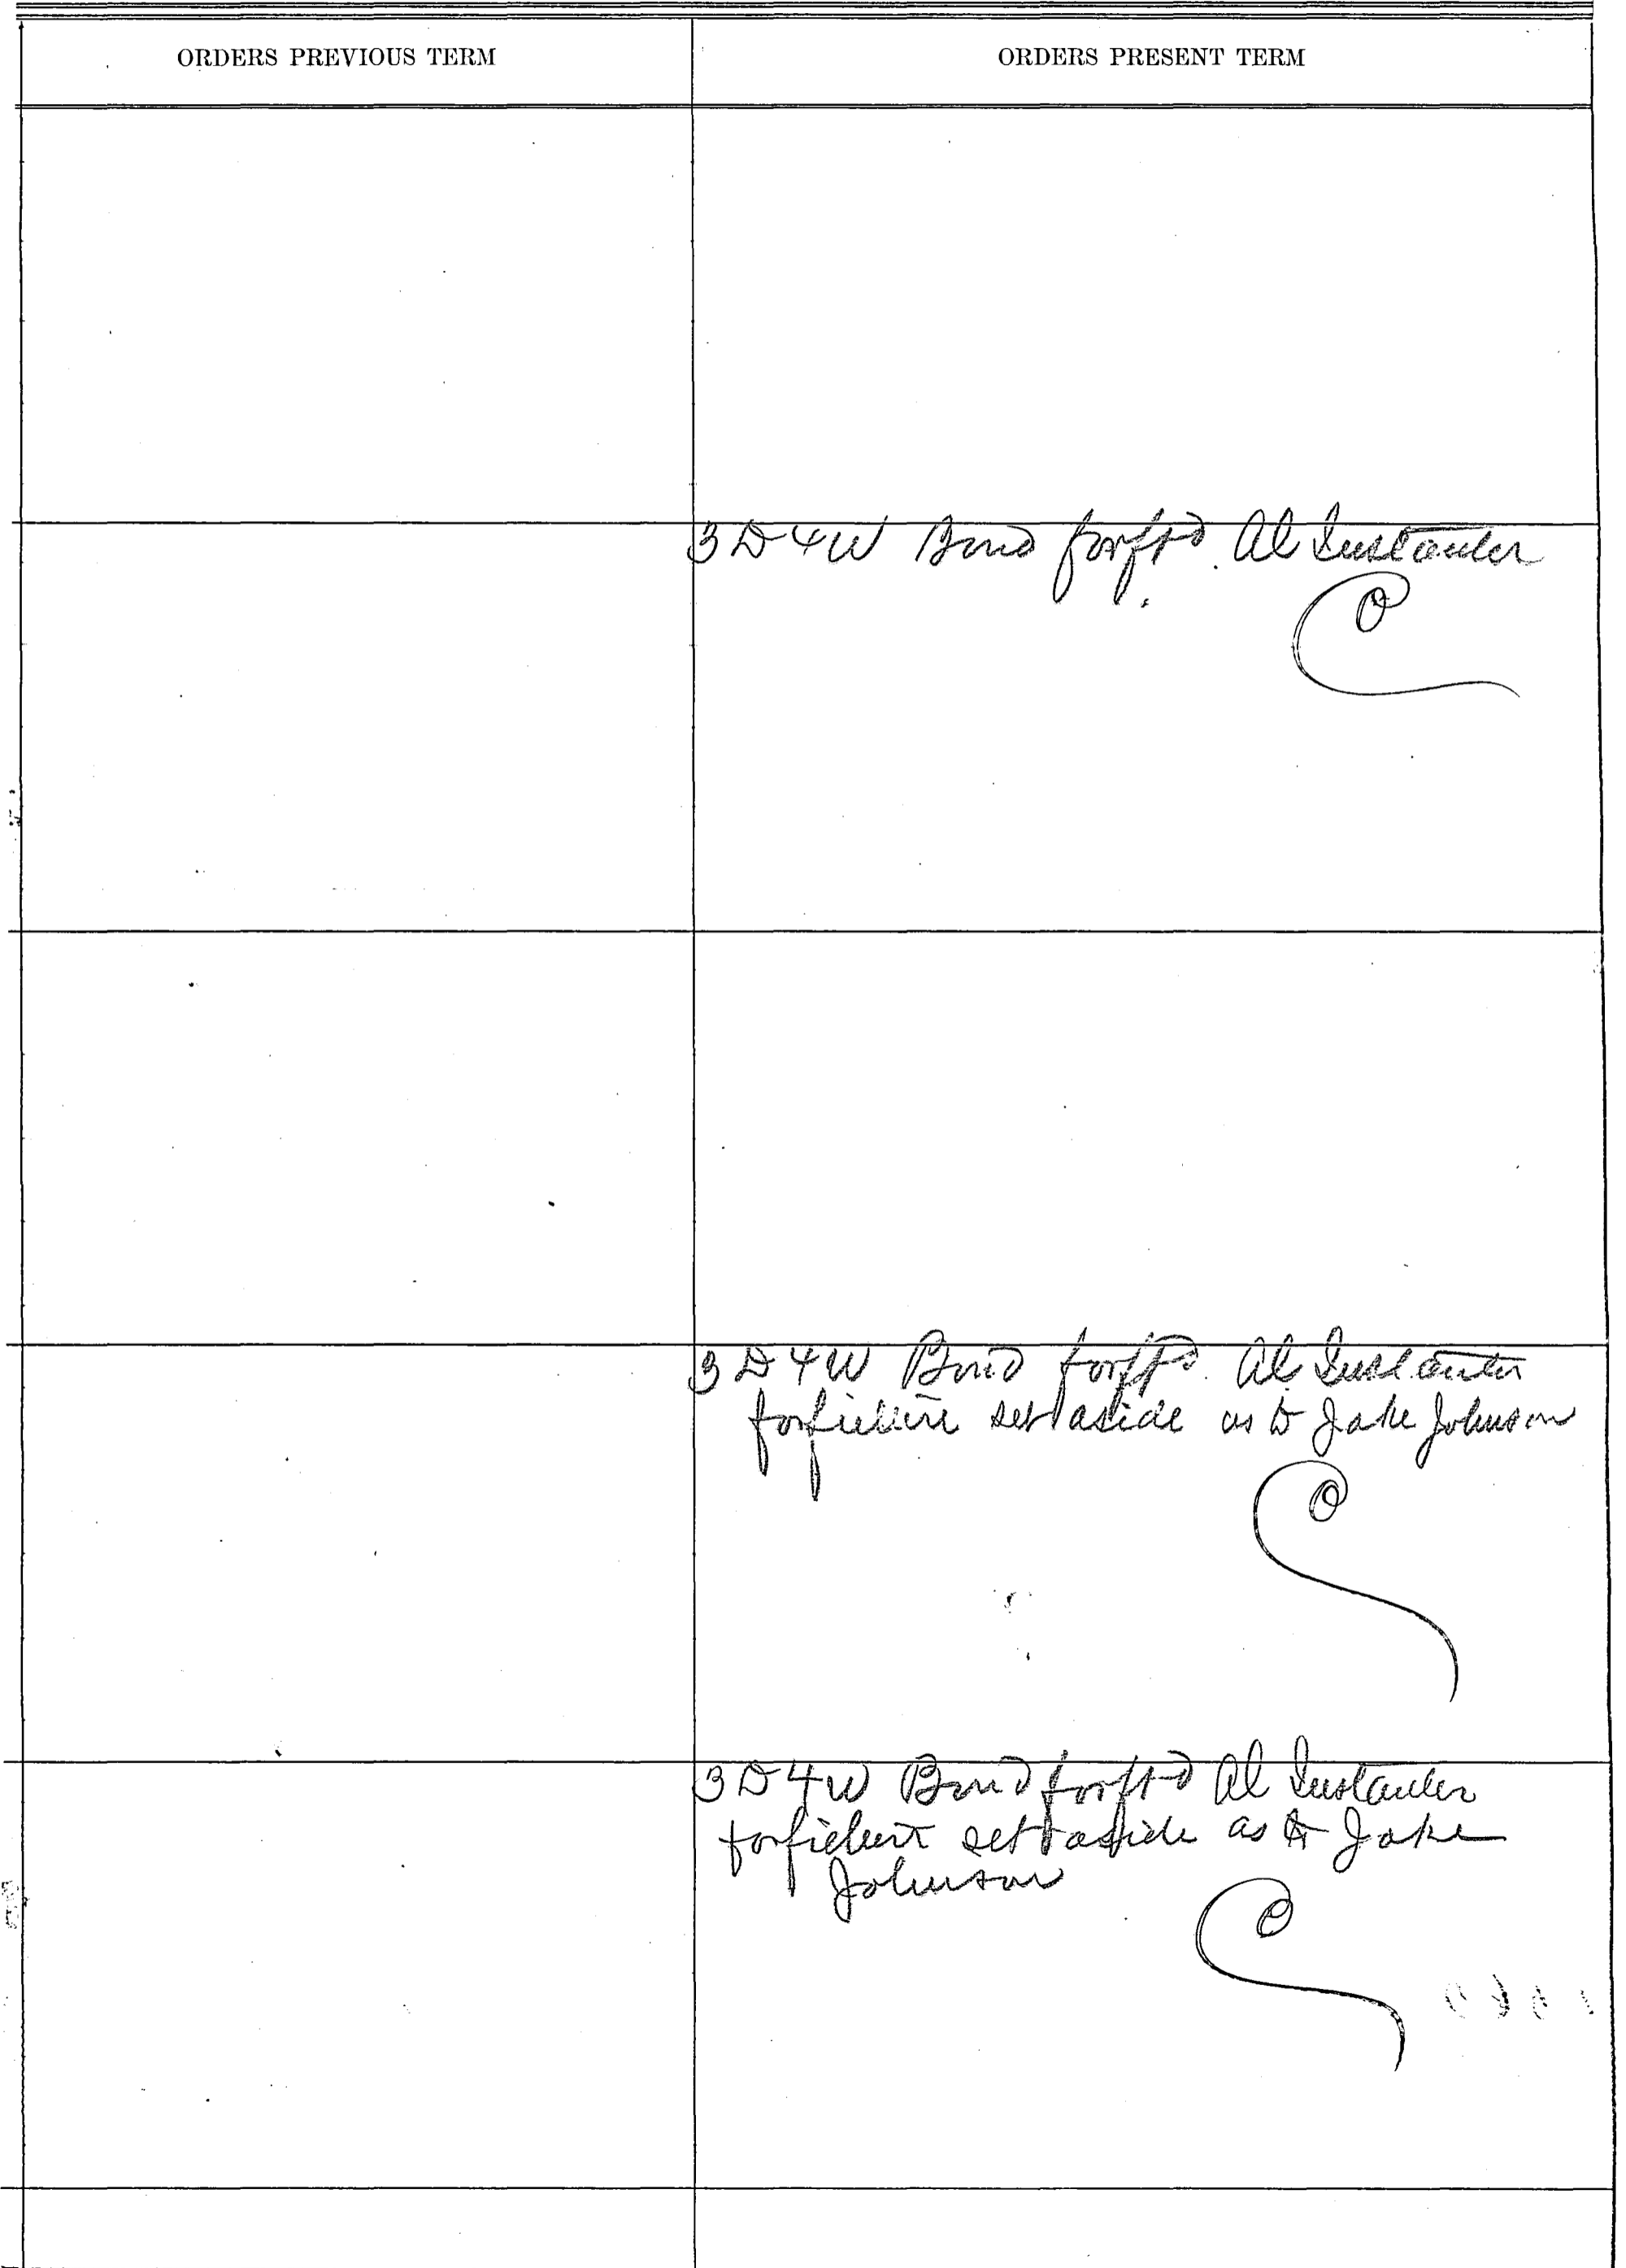 ORDERS PREVIOUS TERM
ORDERS PRESENT TERM
3 D 4 W Bond forft'd. Al Instanter
3 D 4 W Bond forft'd. Al Instanter
forfieture set aside as to Jake Johnson
3 D 4 W Bond forft'd Al Instanter
set aside as to Jake
Johnson